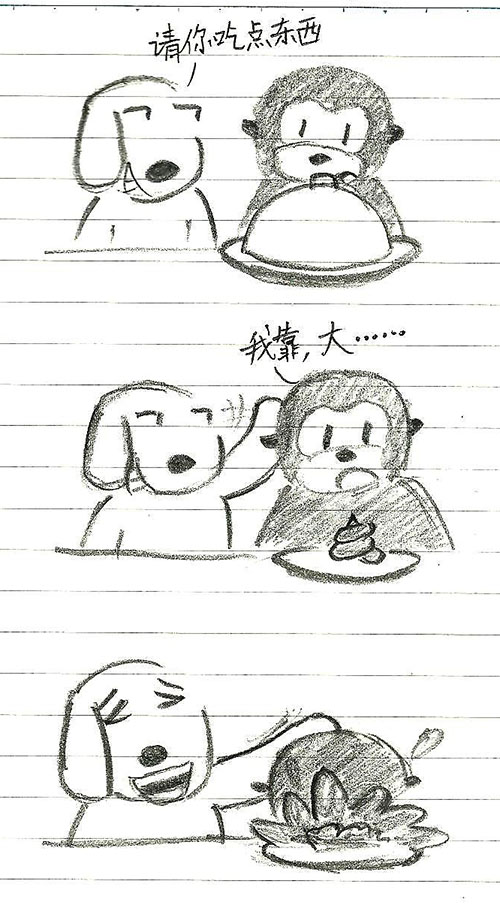 请你吃点东西
我靠,大……